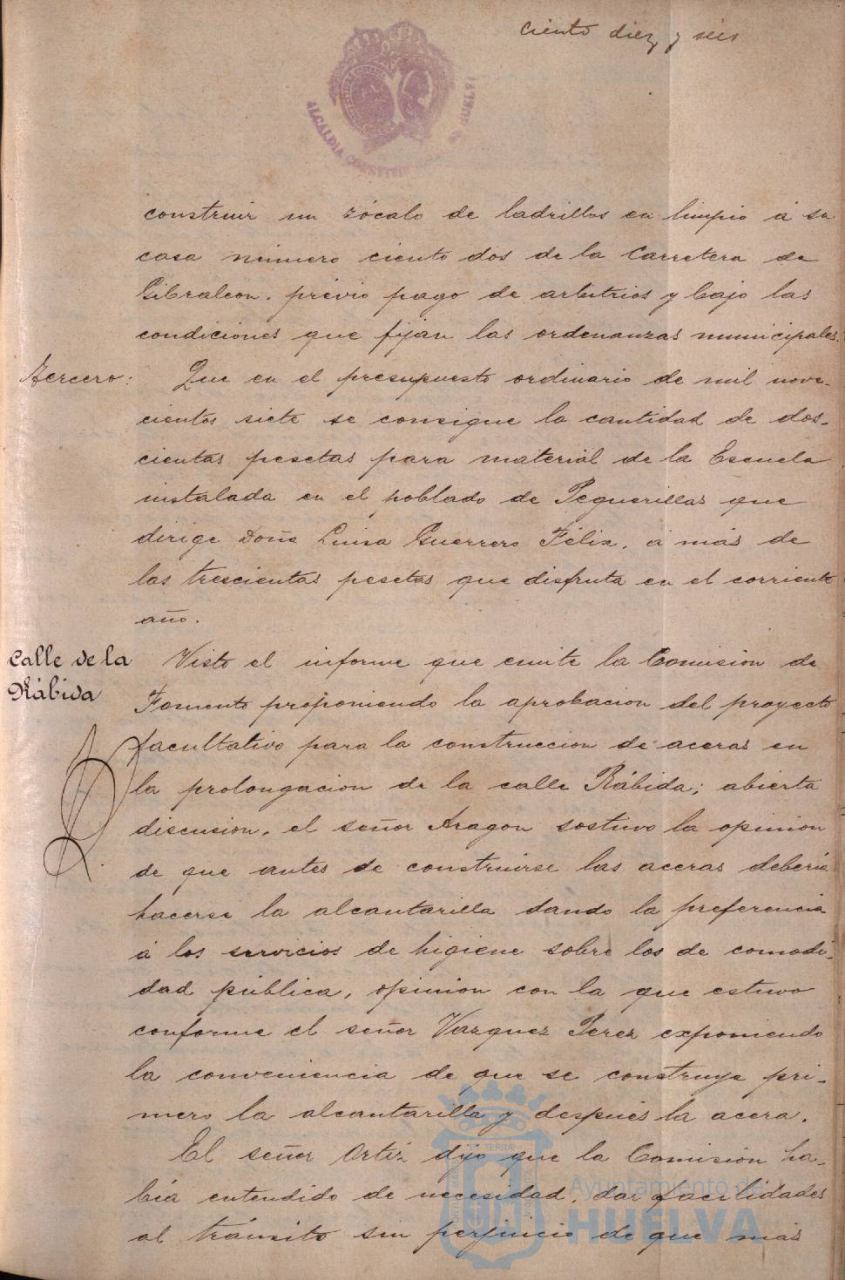 ciento diez y seis
ALCALDIA CONSTITU HUELVA
construir un zócalo de ladrillos en limpio á su
casa número ciento dos de la Carretera de
Gibraleon, prévio pago de arbitrios y bajo las
condiciones que fijan las ordenanzas municipales.
Tercero:
Que en el presupuesto ordinario de mil nove-
cientos siete se consigne la cantidad de dos-
cientas pesetas para material de la Escuela
instalada en el poblado de Peguerillas que
dirige Doña Luisa Guerrero Félix, a más de
las trescientas pesetas que disfruta en el corriente
año.
Calle de la
Rábida
Visto el informe que emite la Comision de
Fomento proponiendo la aprobacion del proyecto
facultativo para la construccion de aceras en
la prolongacion de la calle Rábida; abierta
discusion, el señor Aragon sostuvo la opinion
de que antes de construirse las aceras debería
hacerse la alcantarilla dando la preferencia
á los servicios de higiene sobre los de comodi-
dad pública, opinion con la que estuvo
conforme el señor Vazquez Perez exponiendo
la conveniencia de que se construya pri-
mero la alcantarilla y después la acera.
El señor Ortiz dijo que la Comision ha-
bía entendido de necesidad, dar facilidades
al tránsito sin perjuicio de que más
Ayuntamiento de
HUELVA